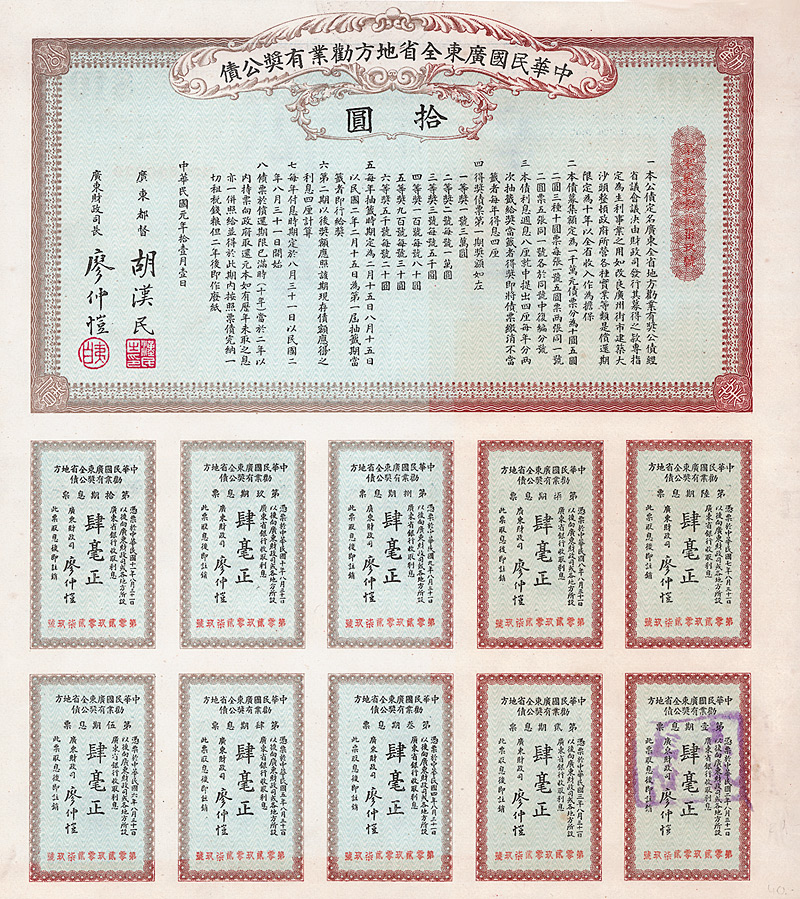 中華民國廣東全省地方勸業有奬公債
拾圓
一本公債定名廣東全省地方勸業有奬公債經
省議會議決由財政司發行其募得之款專指
定為生利事業之用如改良廣州街市建築大
沙頭整頓政府所營各種實業等類是償還期
限定為十年以全省收入作為擔保
二本債募集額定為一千萬元債票分為十圓五圓
二圓三種十圓票每張一號五圓票兩張同一號
二圓票五張同一號各於同號中復編分號
三本債利息週息八厘就中提出四厘每年分兩
次抽籤給奬當籤者得奬即將債票繳消不當
籤者每年得息四厘
四得奬債票第一期奬額如左
一等奬一號三萬圓
二等奬二號每號一萬圓
三等奬三號每號五千圓
四等奬一百號每號八十圓
五等奬九百號每號三十圓
六等奬五千號每號二十圓
五每年抽籤時期定為二月十五日八月十五日
以民國二年二月十五日為第一屆抽籤期當
籤者即行給奬
六第二期以後奬額應照該期現存債額應得之
利息四厘計算
七每年付息時期定於八月三十一日以民國二
年八月三十一日開始
八債票於償還期限已滿時(十年)當於二年以
內持票向政府取還元本如有歷年未取之息
亦一併照給並得於此期內按照票債完納一
切租稅錢糧但二年後即作廢紙
中華民國元年拾壹月壹日
廣東都督 胡漢民
廣東財政司長 廖仲愷
中華民國廣東全省地方
勸業有奬公債
第陸期息票
憑票於中華民國七年八月三十一日
以後向廣東財政司或各地方所設
廣東省銀行收取利息
肆毫正
廣東財政司 廖仲愷
此票取息後即註銷
第零貳玖零貳柒玖號
中華民國廣東全省地方
勸業有奬公債
第柒期息票
憑票於中華民國八年八月三十一日
以後向廣東財政司或各地方所設
廣東省銀行收取利息
肆毫正
廣東財政司 廖仲愷
此票取息後即註銷
第零貳玖零貳柒玖號
中華民國廣東全省地方
勸業有奬公債
第捌期息票
憑票於中華民國九年八月三十一日
以後向廣東財政司或各地方所設
廣東省銀行收取利息
肆毫正
廣東財政司 廖仲愷
此票取息後即註銷
第零貳玖零貳柒玖號
中華民國廣東全省地方
勸業有奬公債
第玖期息票
憑票於中華民國十年八月三十一日
以後向廣東財政司或各地方所設
廣東省銀行收取利息
肆毫正
廣東財政司 廖仲愷
此票取息後即註銷
第零貳玖零貳柒玖號
中華民國廣東全省地方
勸業有奬公債
第拾期息票
憑票於中華民國十一年八月三十一日
以後向廣東財政司或各地方所設
廣東省銀行收取利息
肆毫正
廣東財政司 廖仲愷
此票取息後即註銷
第零貳玖零貳柒玖號
中華民國廣東全省地方
勸業有奬公債
第壹期息票
憑票於中華民國二年八月三十一日
以後向廣東財政司或各地方所設
廣東省銀行收取利息
肆毫正
廣東財政司 廖仲愷
此票取息後即註銷
第零貳玖零貳柒玖號
中華民國廣東全省地方
勸業有奬公債
第貳期息票
憑票於中華民國三年八月三十一日
以後向廣東財政司或各地方所設
廣東省銀行收取利息
肆毫正
廣東財政司 廖仲愷
此票取息後即註銷
第零貳玖零貳柒玖號
中華民國廣東全省地方
勸業有奬公債
第叁期息票
憑票於中華民國四年八月三十一日
以後向廣東財政司或各地方所設
廣東省銀行收取利息
肆毫正
廣東財政司 廖仲愷
此票取息後即註銷
第零貳玖零貳柒玖號
中華民國廣東全省地方
勸業有奬公債
第肆期息票
憑票於中華民國五年八月三十一日
以後向廣東財政司或各地方所設
廣東省銀行收取利息
肆毫正
廣東財政司 廖仲愷
此票取息後即註銷
第零貳玖零貳柒玖號
中華民國廣東全省地方
勸業有奬公債
第伍期息票
憑票於中華民國六年八月三十一日
以後向廣東財政司或各地方所設
廣東省銀行收取利息
肆毫正
廣東財政司 廖仲愷
此票取息後即註銷
第零貳玖零貳柒玖號